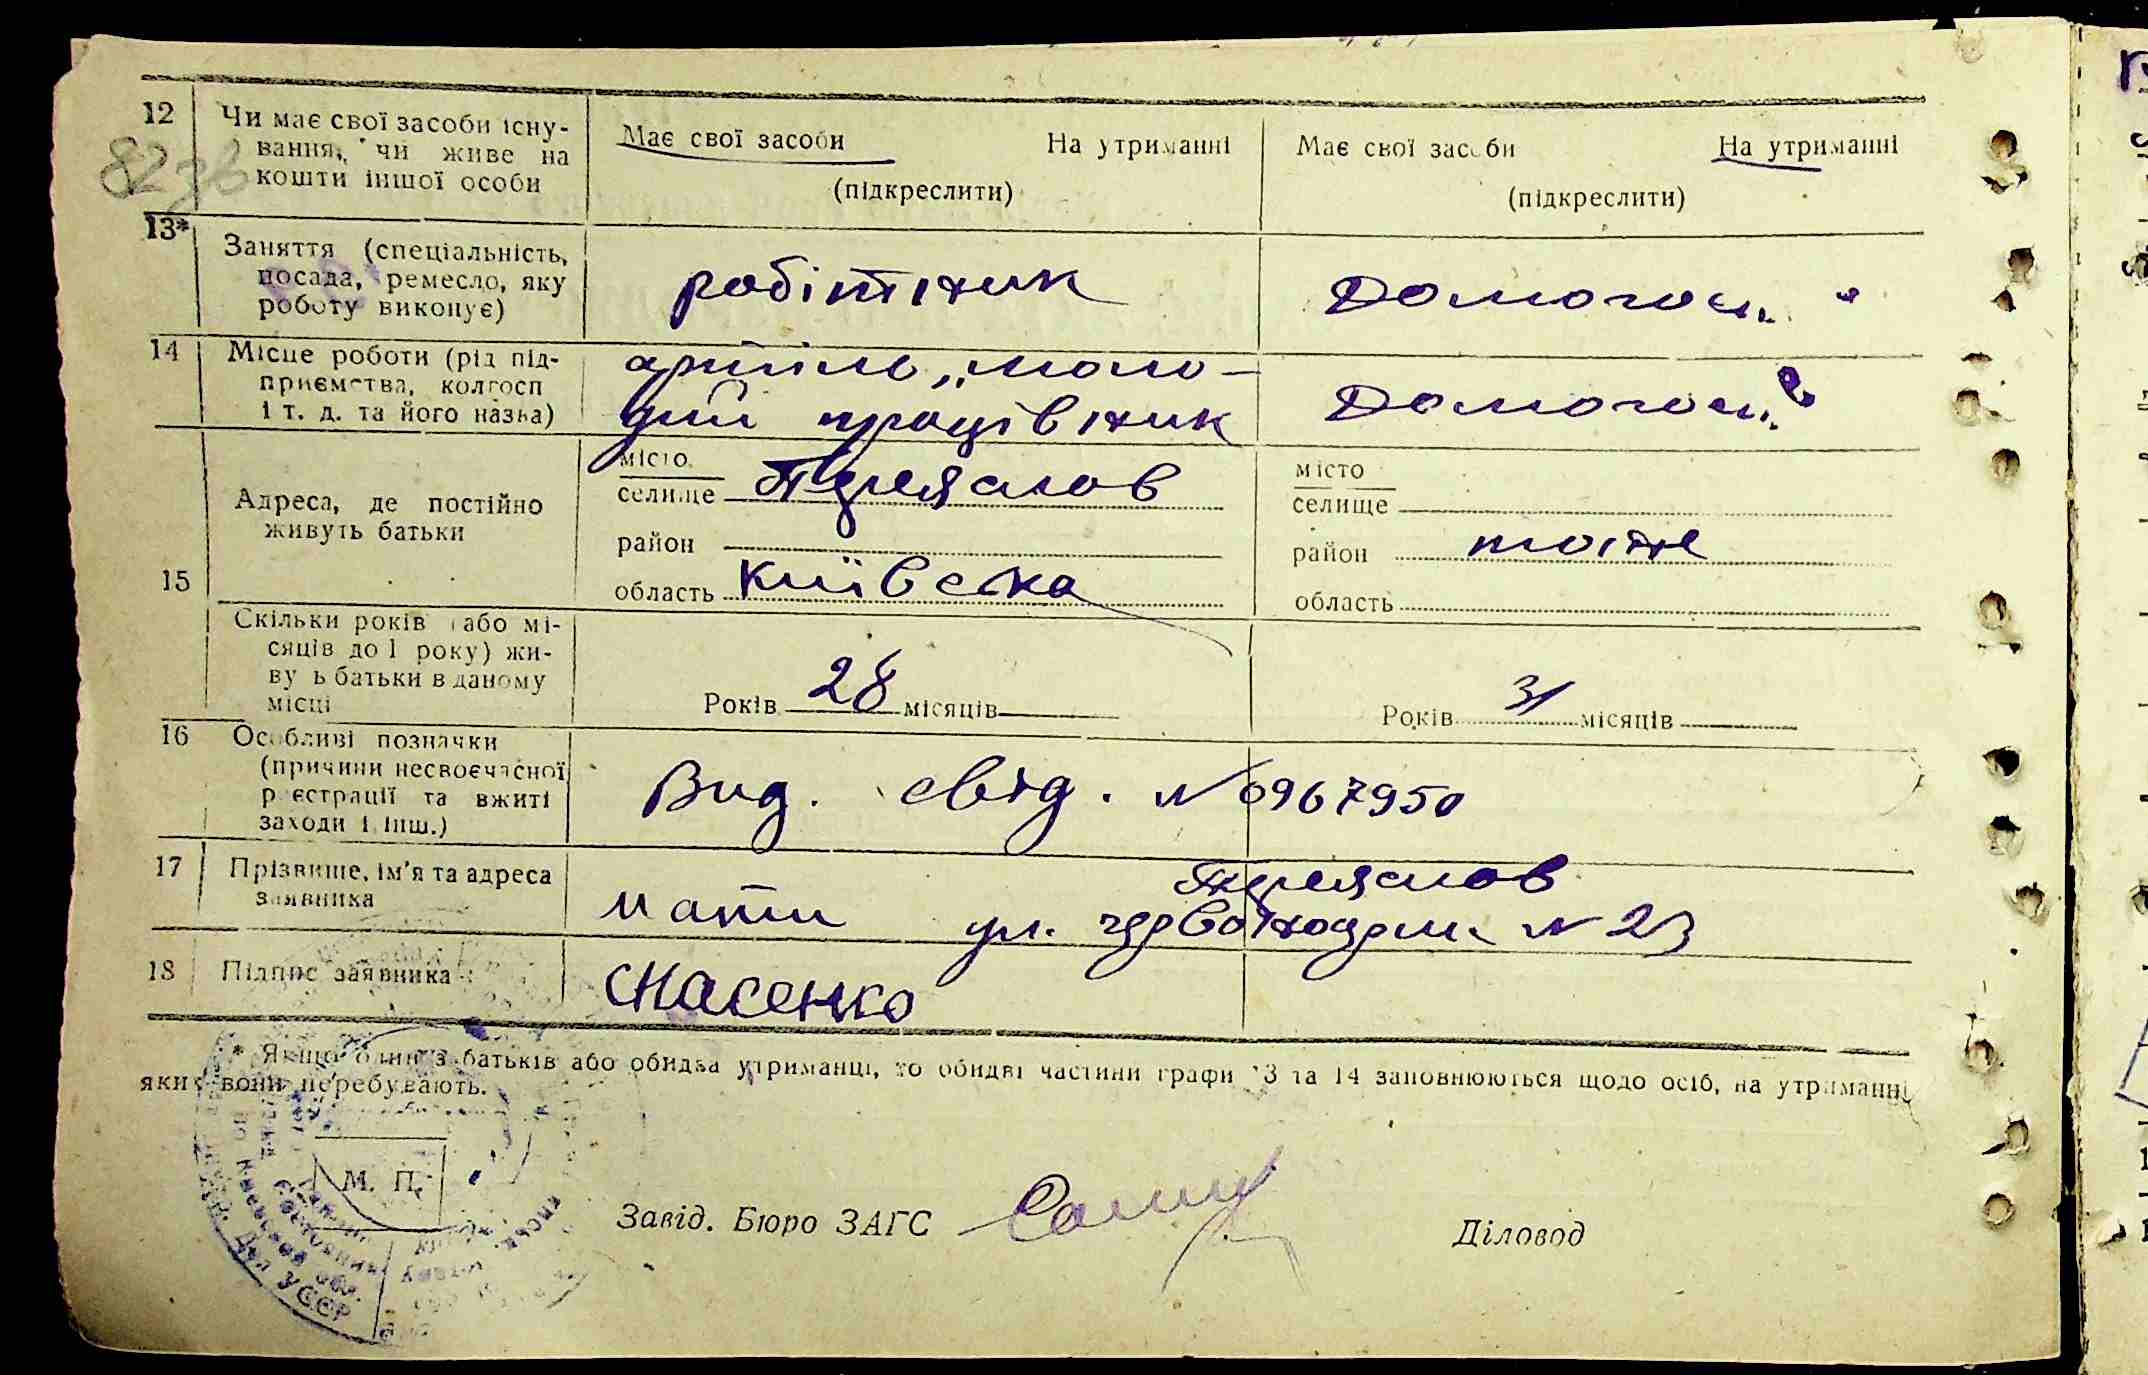 12 Чи має свої засоби існу-
вання, чи живе на
кошти іншої особи
82 зв
Має свої засоби На утриманні
(підкреслити)
Має свої засоби На утриманні
(підкреслити)
13* Заняття (спеціальність,
посада, ремесло, яку
роботу виконує)
робітник
Домогосп.
14 Місце роботи (рід під-
приємства, колгосп
і т. д. та його назва)
артіль „моло-
дий працівник
Домогосп.
15
Адреса, де постійно
живуть батьки
місто
селище Переяслов
район
область Київська
місто
селище
район тоже
область
Скільки років або мі-
сяців до 1 року) жи-
вуть батьки в даному
місці
Років 28 місяців
Років 31 місяців
16 Особливі позначки
(причини несвоєчасної
реєстрації та вжиті
заходи і інш.)
Вид. свід. № 0967950
17 Прізвище, ім'я та адреса
заявника
мати
Переяслов
ул. червоноарм. № 23
18 Підпис заявника
Снасенко
* Якщо один з батьків або обидва утриманці, то обидві частини графи 13 та 14 заповнюються щодо осіб, на утриманні
яких вони перебувають.
М. П.
Завід. Бюро ЗАГС
Діловод
Киевской обл.
УССР